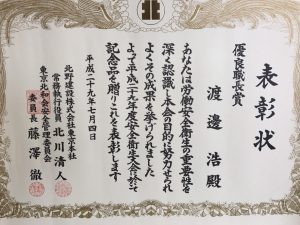 表彰状
優良職長賞
渡邊浩殿
あなたは労働安全衛生の重要性を
深く認識し本会の目的に努力せられ
よくその成果を挙げられました
よって平成二十九年度安全衛生大会に於て
記念品を贈りこれを表彰します
平成二十九年七月四日
北野建設株式会社東京本社
常務執行役員 北川清人
東京北和会安全管理委員会
委員長 藤澤徹